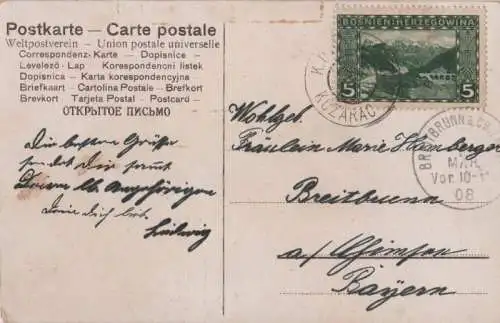 Postkarte — Carte postale
Weltpostverein — Union postale universelle
Correspondenz-Karte — Dopisnice —
Levelező-Lap Korespondencni listek
Dopisnica — Karta korespondencyjna
Briefkaart — Cartolina Postale — Brefkort
Brevkort Tarjeta Postal — Postcard —
ОТКРЫТОЕ ПИСЬМО
Die besten Grüße
sendet Dir samt
lb. Angehörigen
Dein Dich
Ludwig
BOSNIEN-HERCEGOWINA
5 5
KOZARAC
Wohlgeb.
Fräulein Marie Hamberger
Breitbrunn
a/Chiemsee
Bayern
BREITBRUNN a. CH
MAR
Vor. 10-11
08